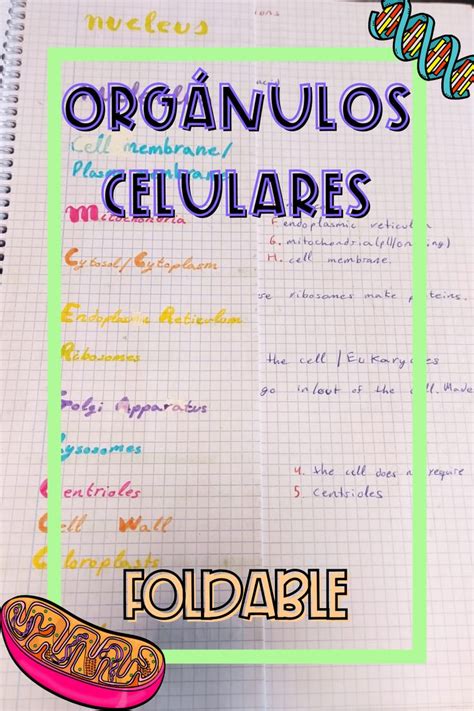 nucleus
ions
ORGÁNULOS
Cell membrane/
Plasm membrane
CELULARES
Mitochondria
F. endoplasmic reticulu
G. mitochondria (pl/on ing)
H. cell membrane.
Cytosol/Cytoplasm
se ribosomes make proteins.
Endoplasmic Reticulum
Ribosomes
the cell / Eukaryotes
go in/out of the cell. Made
Golgi Apparatus
Lysosomes
4. the cell does not require
Centrioles
5 centrioles
Cell Wall
Chloroplasts
FOLDABLE